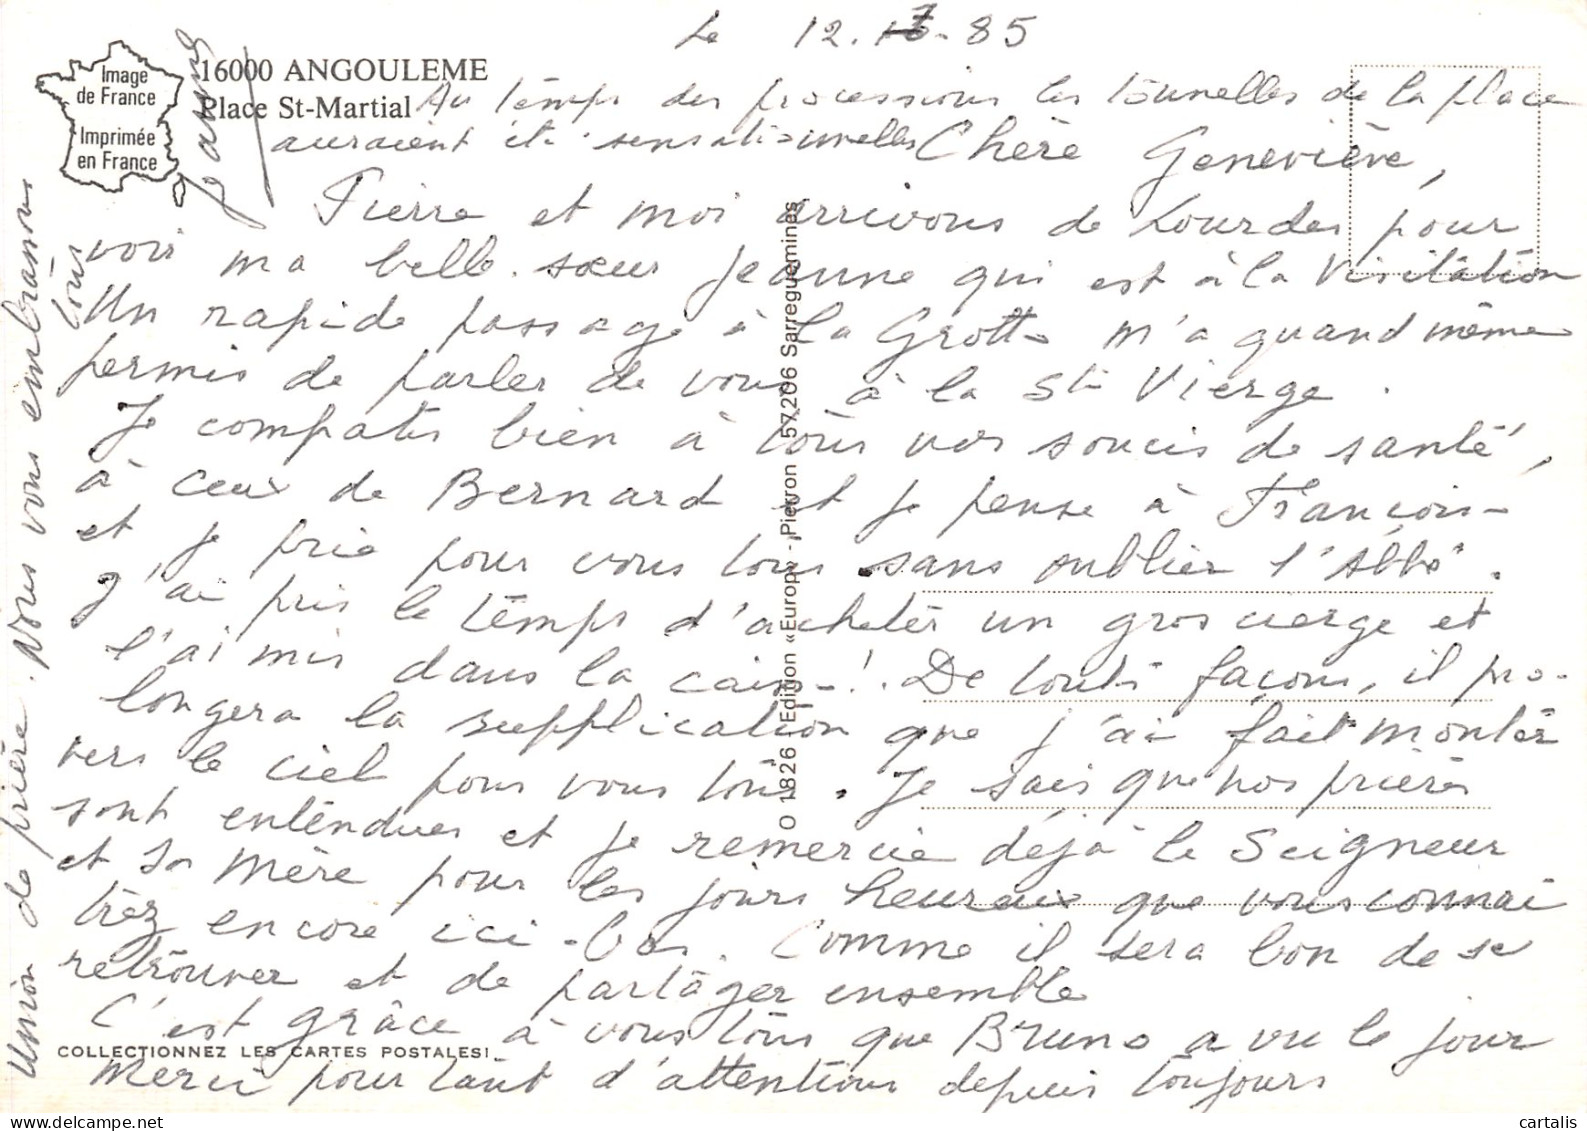 Le 12.7.85
Image
de France
Imprimée
en France
16000 ANGOULEME
Place St-Martial
Au temps des processions les tonnelles de la place
auraient été sensationnelles
Chère Geneviève,
Pierre et moi arrivons de Lourdes pour
voir ma belle-sœur Jeanne qui est à la Visitation
Un rapide passage à la Grotte m'a quand même
permis de parler de vous à la Ste Vierge.
Je compatis bien à tous vos soucis de santé,
à ceux de Bernard et je pense à François -
et je prie pour vous tous sans oublier l'Abbé.
J'ai pris le temps d'acheter un gros cierge et
l'ai mis dans la caisse! De toute façon, il pro-
longera la supplication que j'ai fait monter
vers le ciel pour vous tous. Je sais que nos prières
sont entendues et je remercie déjà le Seigneur
et Sa Mère pour les jours heureux que vous connai
trez encore ici-bas. Comme il sera bon de se
retrouver et de partager ensemble
C'est grâce à vous tous que Bruno a vu le jour
Merci pour tant d'attentions depuis toujours
Je assure
Union de prière. Nous vous embrassons
tous
O 1826 Edition «Europ» - Pierron 57206 Sarreguemines
COLLECTIONNEZ LES CARTES POSTALES!
cartalis